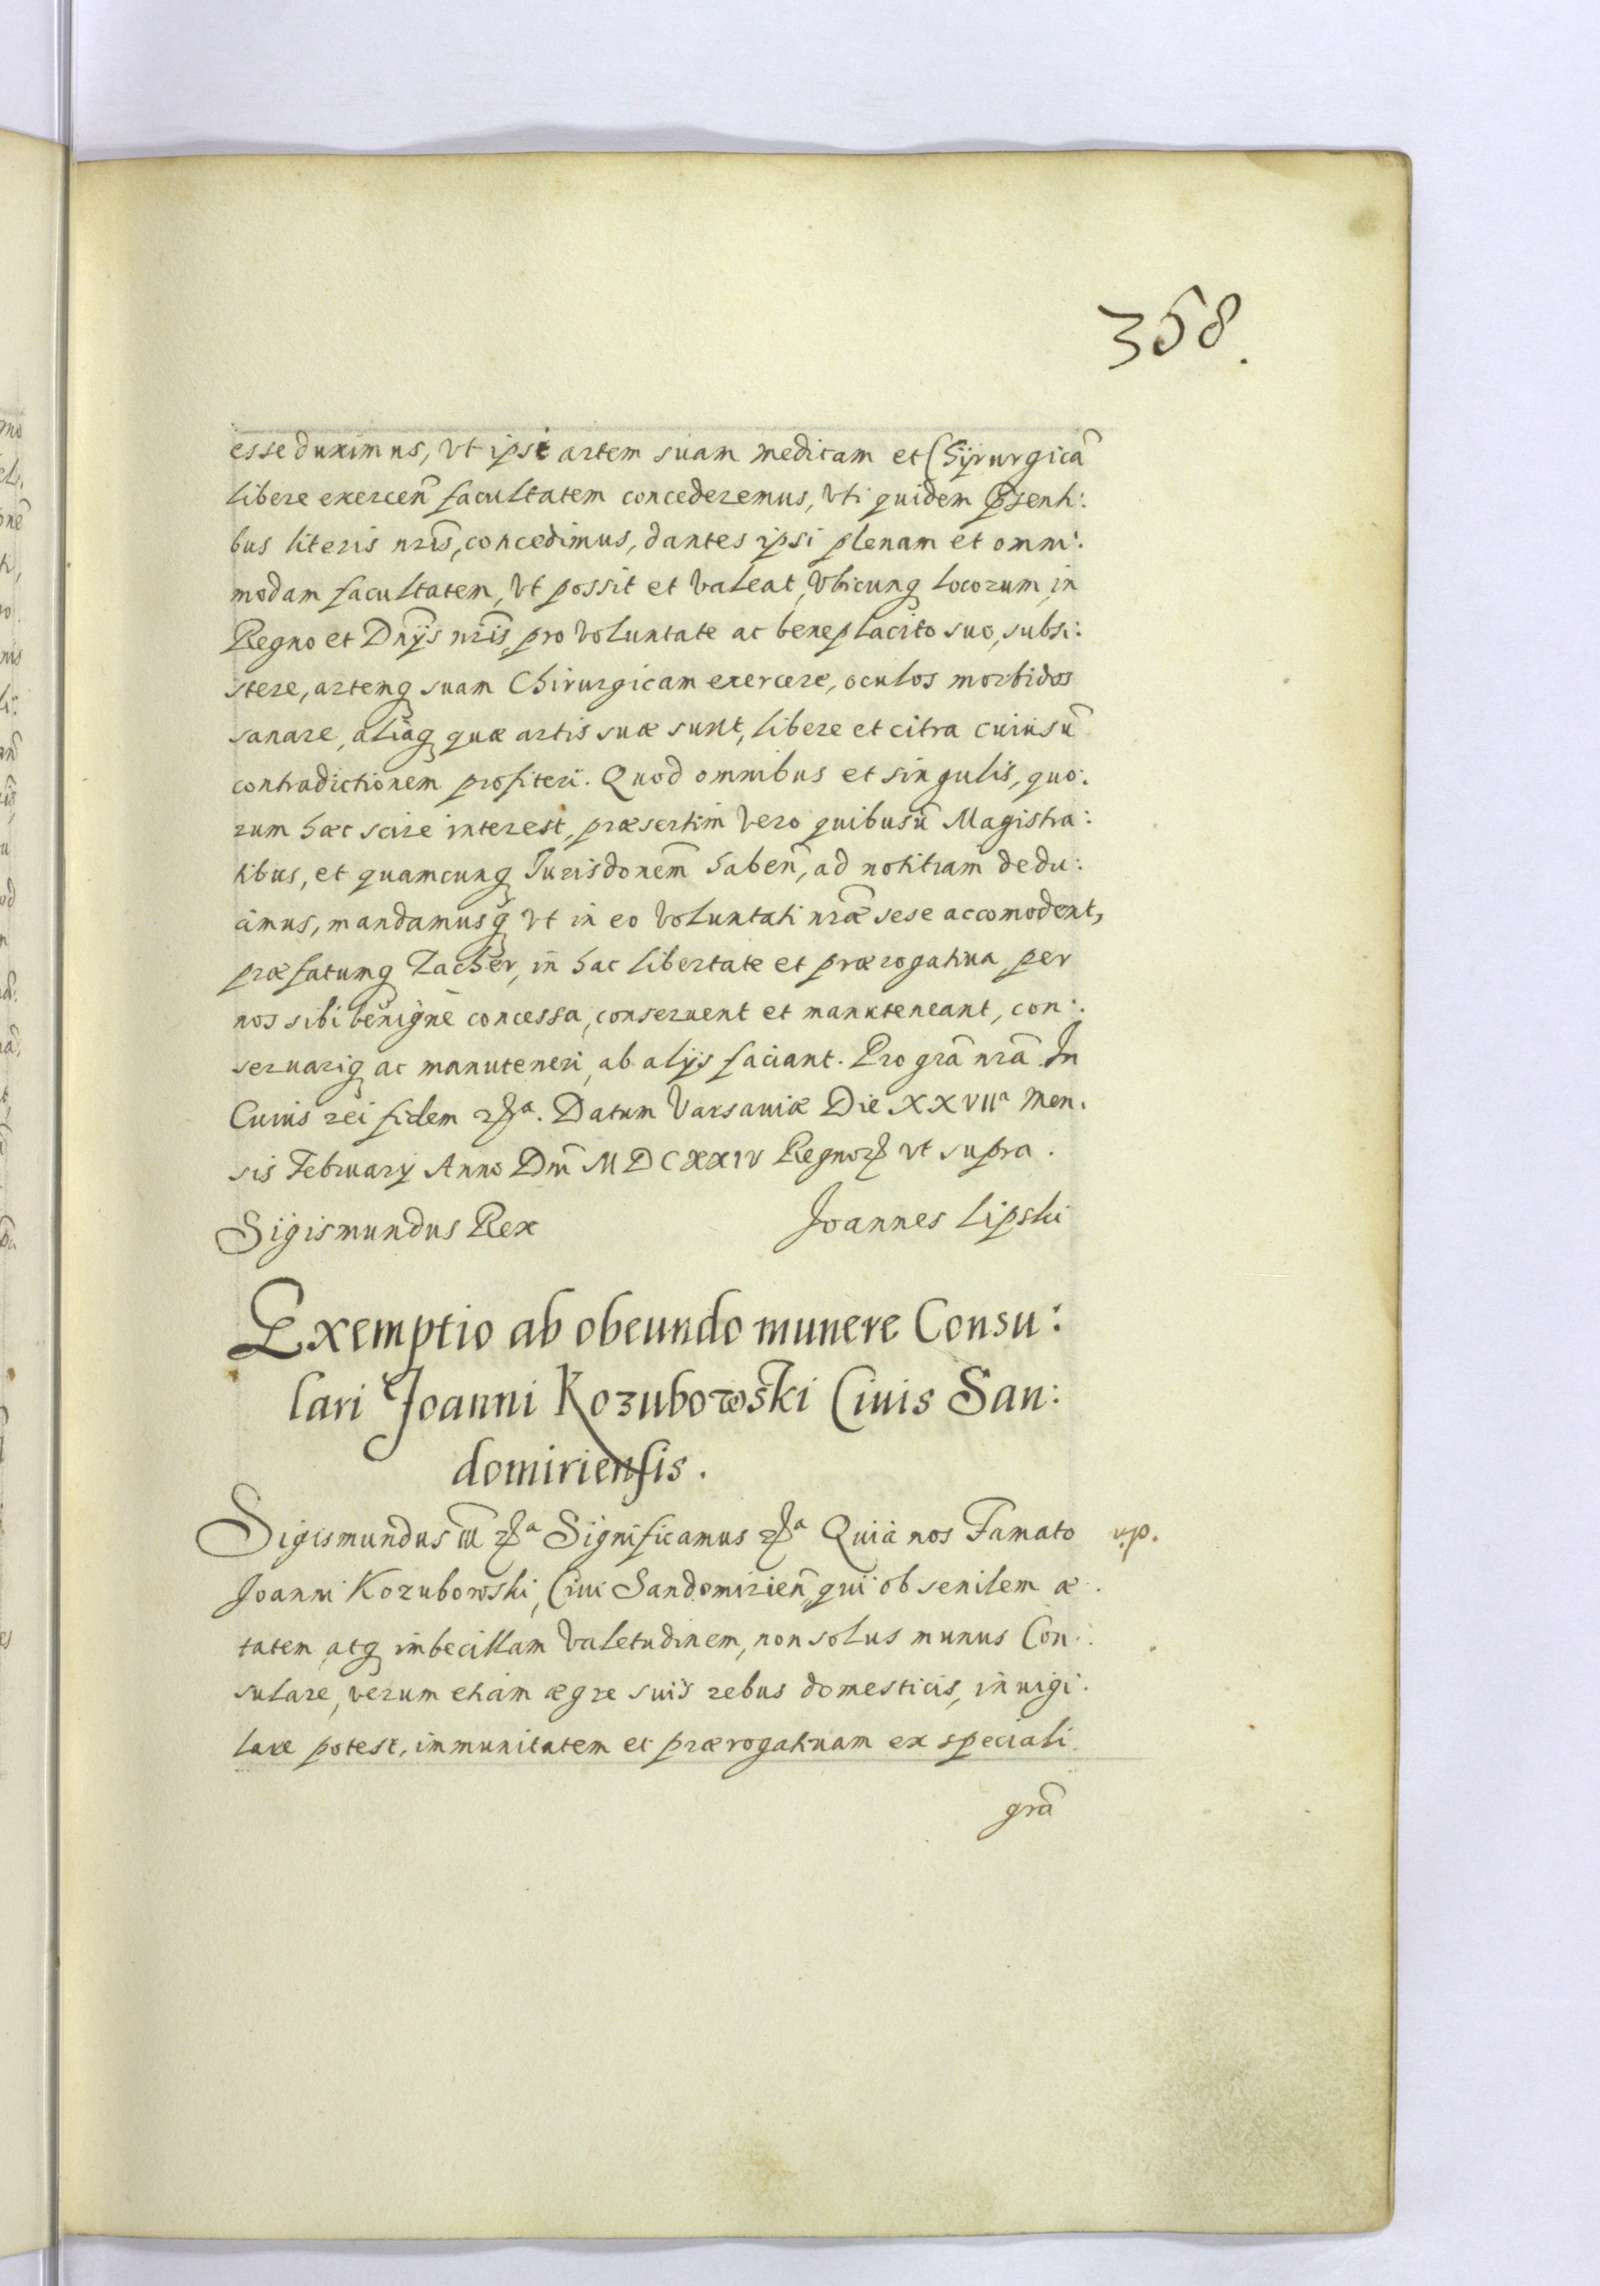 358.
esse duximus, vt ipsi artem suam medicam et Chÿrurgicã
libere exercen̄ facultatem concederemus, vti quidem p̄senti:
bus literis nr̃is, concedimus, dantes ipsi plenam et omni:
modam facultatem, vt possit et valeat, vbicunq locorum in
Regno et Dn̄ÿs nr̃is, pro voluntate ac beneplacito suo, subsi:
stere, artemq suam Chirurgicam exercere, oculos morbidos
sanare, aliaq quæ artis suæ sunt, libere et citra cuiusũ
contradictionem profiteri. Quod omnibus et singulis, quo:
rum hæc scire interest, præsertim vero quibusũ Magistra:
tibus, et quamcunq Jurisdonem̄ haben̄, ad notitiam dedu:
cimus, mandamusq vt in eo voluntati nr̃æ sese accomodent,
præfatumq Zacher, in hac libertate et prærogatiua per
nos sibi benigne concessa, conseruent et manuteneant, con:
seruariq ac manuteneri, ab alÿs faciant. Pro grã nr̃a. In
Cuius rei fidem ꝛꝭa. Datum Varsauiæ Die XXVIIa Men.
sis Februarÿ Anno Dnĩ MDCXXIV Regnoꝝ vt supra.
Sigismundus Rex Joannes Lipski
Exemptio ab obeundo munere Consu:
lari Joanni Kozubowski Ciuis San:
domiriensis.
Sigismundus III ꝛꝭa Significamus ꝛꝭa Quia nos Famato v.p.
Joanni Kozubowski, Ciui Sandomirien̄, qui ob senilem æ.
tatem, atq imbecillam valetudinem, non solus munus Con:
sulare, verum etiam ægre suis rebus domesticis, inuigi:
lare potest, immunitatem et prærogatiuam ex speciali
grã